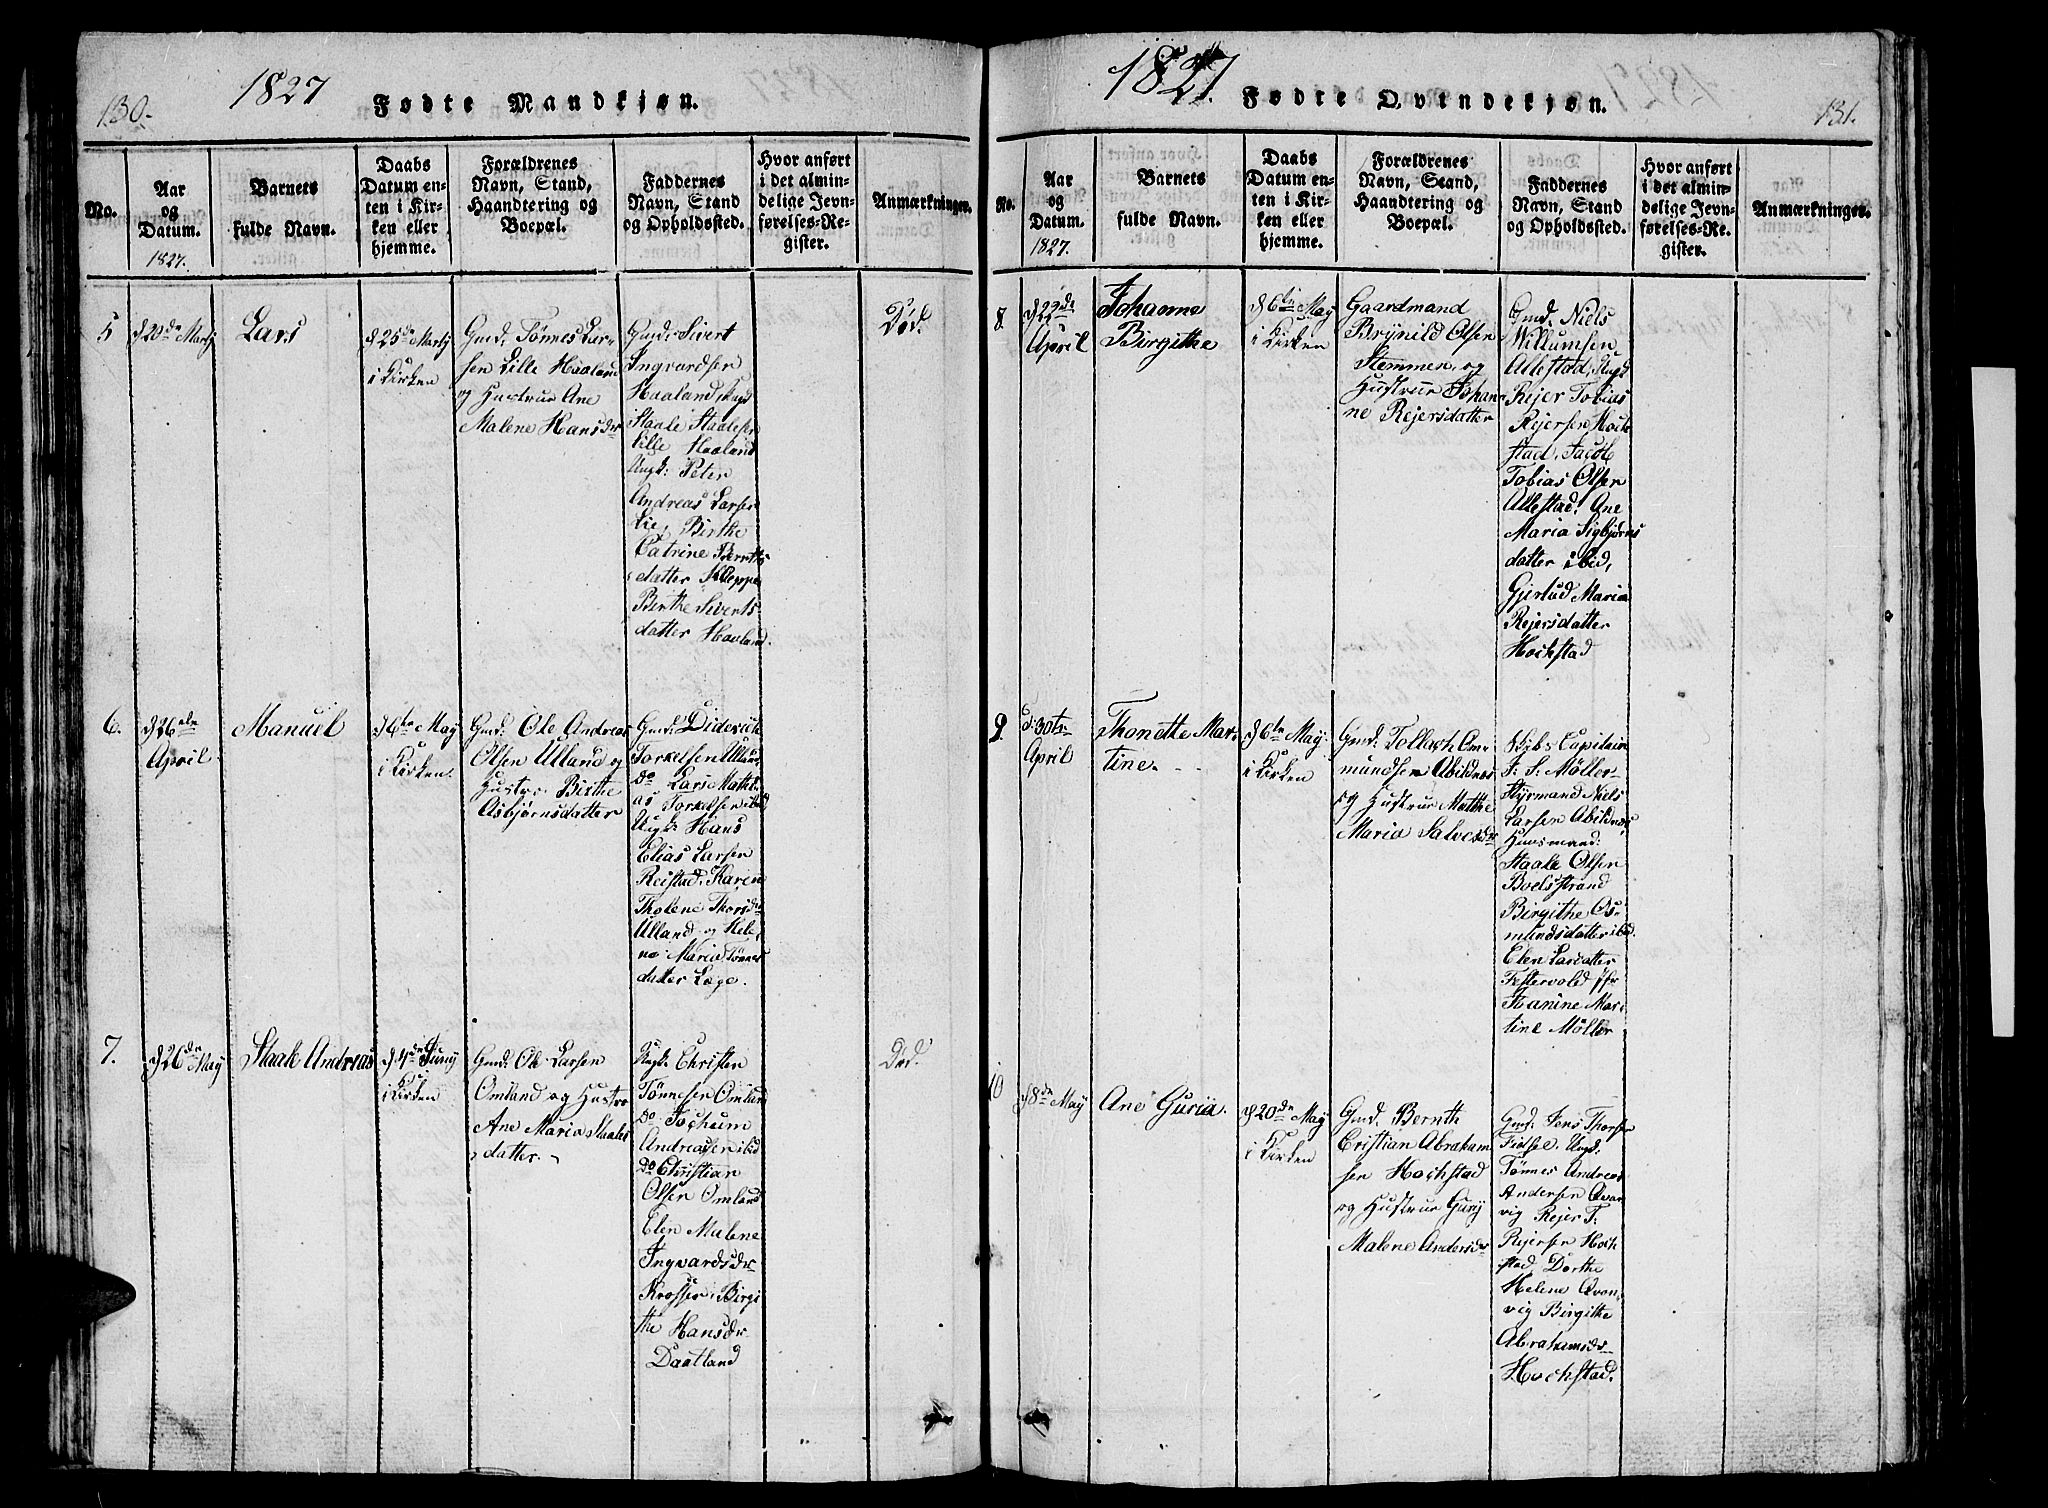 130.
1827
Fødte Mandkjøn.
No.
Aar
og
Datum.
1827.
Barnets
fulde Navn.
Daabs
Datum en-
ten i Kir-
ken eller
hjemme.
Forældrenes
Navn, Stand,
Haandtering og
Boepæl.
Faddernes
Navn, Stand
og Opholdssted.
Hvor anført
i det almin-
delige Jevn-
førelses-Re-
gister.
Anmærkninger.
5
d 20de Martj
Lars
d 25de Martj
i Kirken
Gmd. Tønnes Lar-
sen Lille Haaland
og Hustrue Ane
Malene Hansdr
Gmd: Sivert
Ingvardsen
Haaland, Ungk
Staale Staalesen
Lille Haaland
Ungk: Peter
Andreas Larsen
Lie, Birthe
Catrine Bernts-
datter Kleppe
Birthe Siverts-
datter Haaland.
Død.
6.
d 26de
April.
Manuel
d 6te May
i Kirken.
Gmd: Ole Andreas
Olsen Ulland og
Hustro Birthe
Asbjørnsdatter
Gmd: Diderich
Torkelsen Ullan
do Lars Mathi-
as Torkelsen ibid
Ungk: Hans
Elias Larsen
Reistad, Karen
Tholene Thorsdr
Ulland og Hele-
ne Maria Tønnes
datter Lege.
7.
d 26de May
Staale Andreas
d 4de Juny
i Kirken
Gmd: Ole Larsen
Omland og Hustro
Ane Maria Staales
datter.
Ungk: Christen
Tønnesen Omland
do Jochum
Andreasen ibid
do Christian
Olsen Omland
Elen Malene
Ingvardsdr
Krosse, Birgi
the Hansdr
Daatland
Død.
1827.
Fødte Qvindekjøn.
131.
No.
Aar
og
Datum.
1827.
Barnets
fulde Navn.
Daabs
Datum en-
ten i Kir-
ken eller
hjemme.
Forældrenes
Navn, Stand,
Haandtering og
Boepæl.
Faddernes
Navn, Stand
og Opholdssted.
Hvor anført
i det almin-
delige Jevn-
førelses-Re-
gister.
Anmærkninger.
8.
d 22de
April
Johanne
Birgithe
d 6te May
i Kirken
Gaardmand
Brynild Olsen
Stemmen, og
Hustrue Johan-
ne Rejersdatter
Gmd. Niels
Willumsen
Allestad, Ungk
Rejer Tobias
Rejersen Hoch-
stad, Jacob
Tobias Olsen
Allestad. Ane
Maria Sigbjørns
datter ibid,
Gjertud Maria
Rejersdatter
Hochstad
9.
d: 30te
April
Thonette Mar-
tine.
d 6te May
i Kirken
Gmd: Tollach Om-
mundsen Abildnæs
og Hustrue Marthe
Maria Salvesdr
Skibs Capitain
F. S. Møller
Styrmand Niels
Larsen Abildnæs,
Huusmand:
Staale Olsen
Boelsstrand
Birgithe Os-
mundsdatter ibid.
Elen Larsdatter
Festervold Jfr
Hanine Mar-
tine Møller
10
d 8de May
Ane Guria.
d 20de May
i Kirken
Gmd. Bernth
Cristian Abraham
sen Hochstad
og Hustrue Gurj
Malene Andersdr
Gmd: Jens Thorsen
Fidsel. Ungk.
Tønnes Andreas
Andersen Qvan
vig Rejer T:
Rejersen Hoch
stad, Dorthe
Helene Qvan-
vig Birgithe
Abrahamsdr
Hochstad.